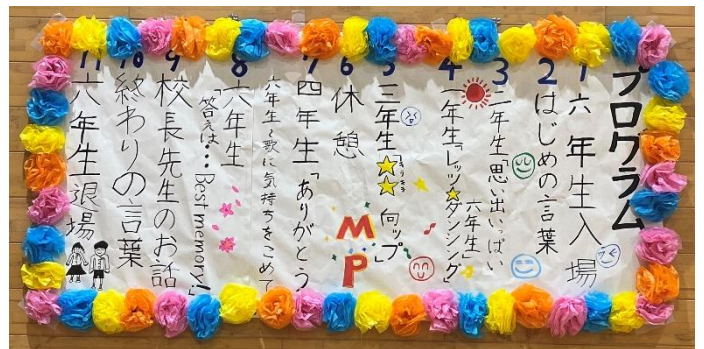 プログラム
1 六年生入場
2 はじめの言葉
3 二年生「思い出いっぱい
六年生」
4 一年生「レッツ★ダンシング」
5 三年生「★★向ップ」
MP
6 休憩
7 四年生「ありがとう
六年生~歌に気持ちをこめて
8 六年生
「答えは…Best memory!」
9 校長先生のお話
10 終わりの言葉
11 六年生退場